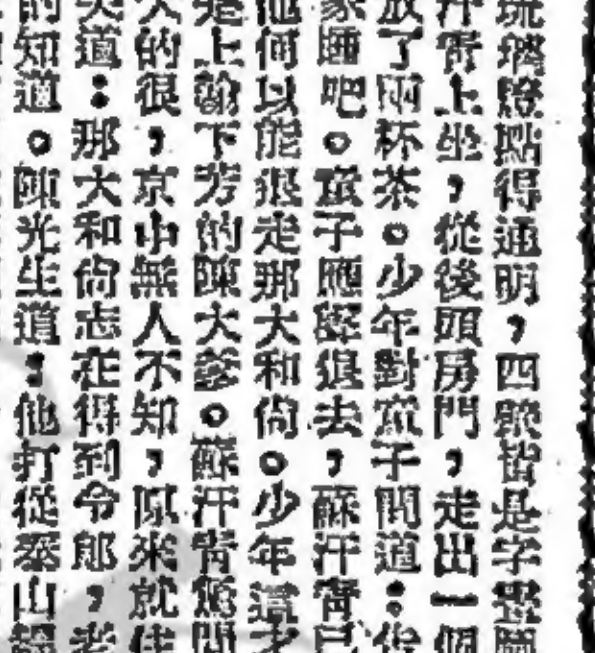 琉璃燈點得通明，四
汗青上坐，從後頭房門，走出一個
放了兩杯茶。少年對童子問道：
家睡吧。童子應聲退去，蘇汗青已
他何以能退走那大和尚。少年道
是上 下 的陳大爹。蘇汗青 問
人的很，京中無人不知，原來就住
道：那大和尚志在得到令郎，老
的知道。陳光生道：他打從泰山